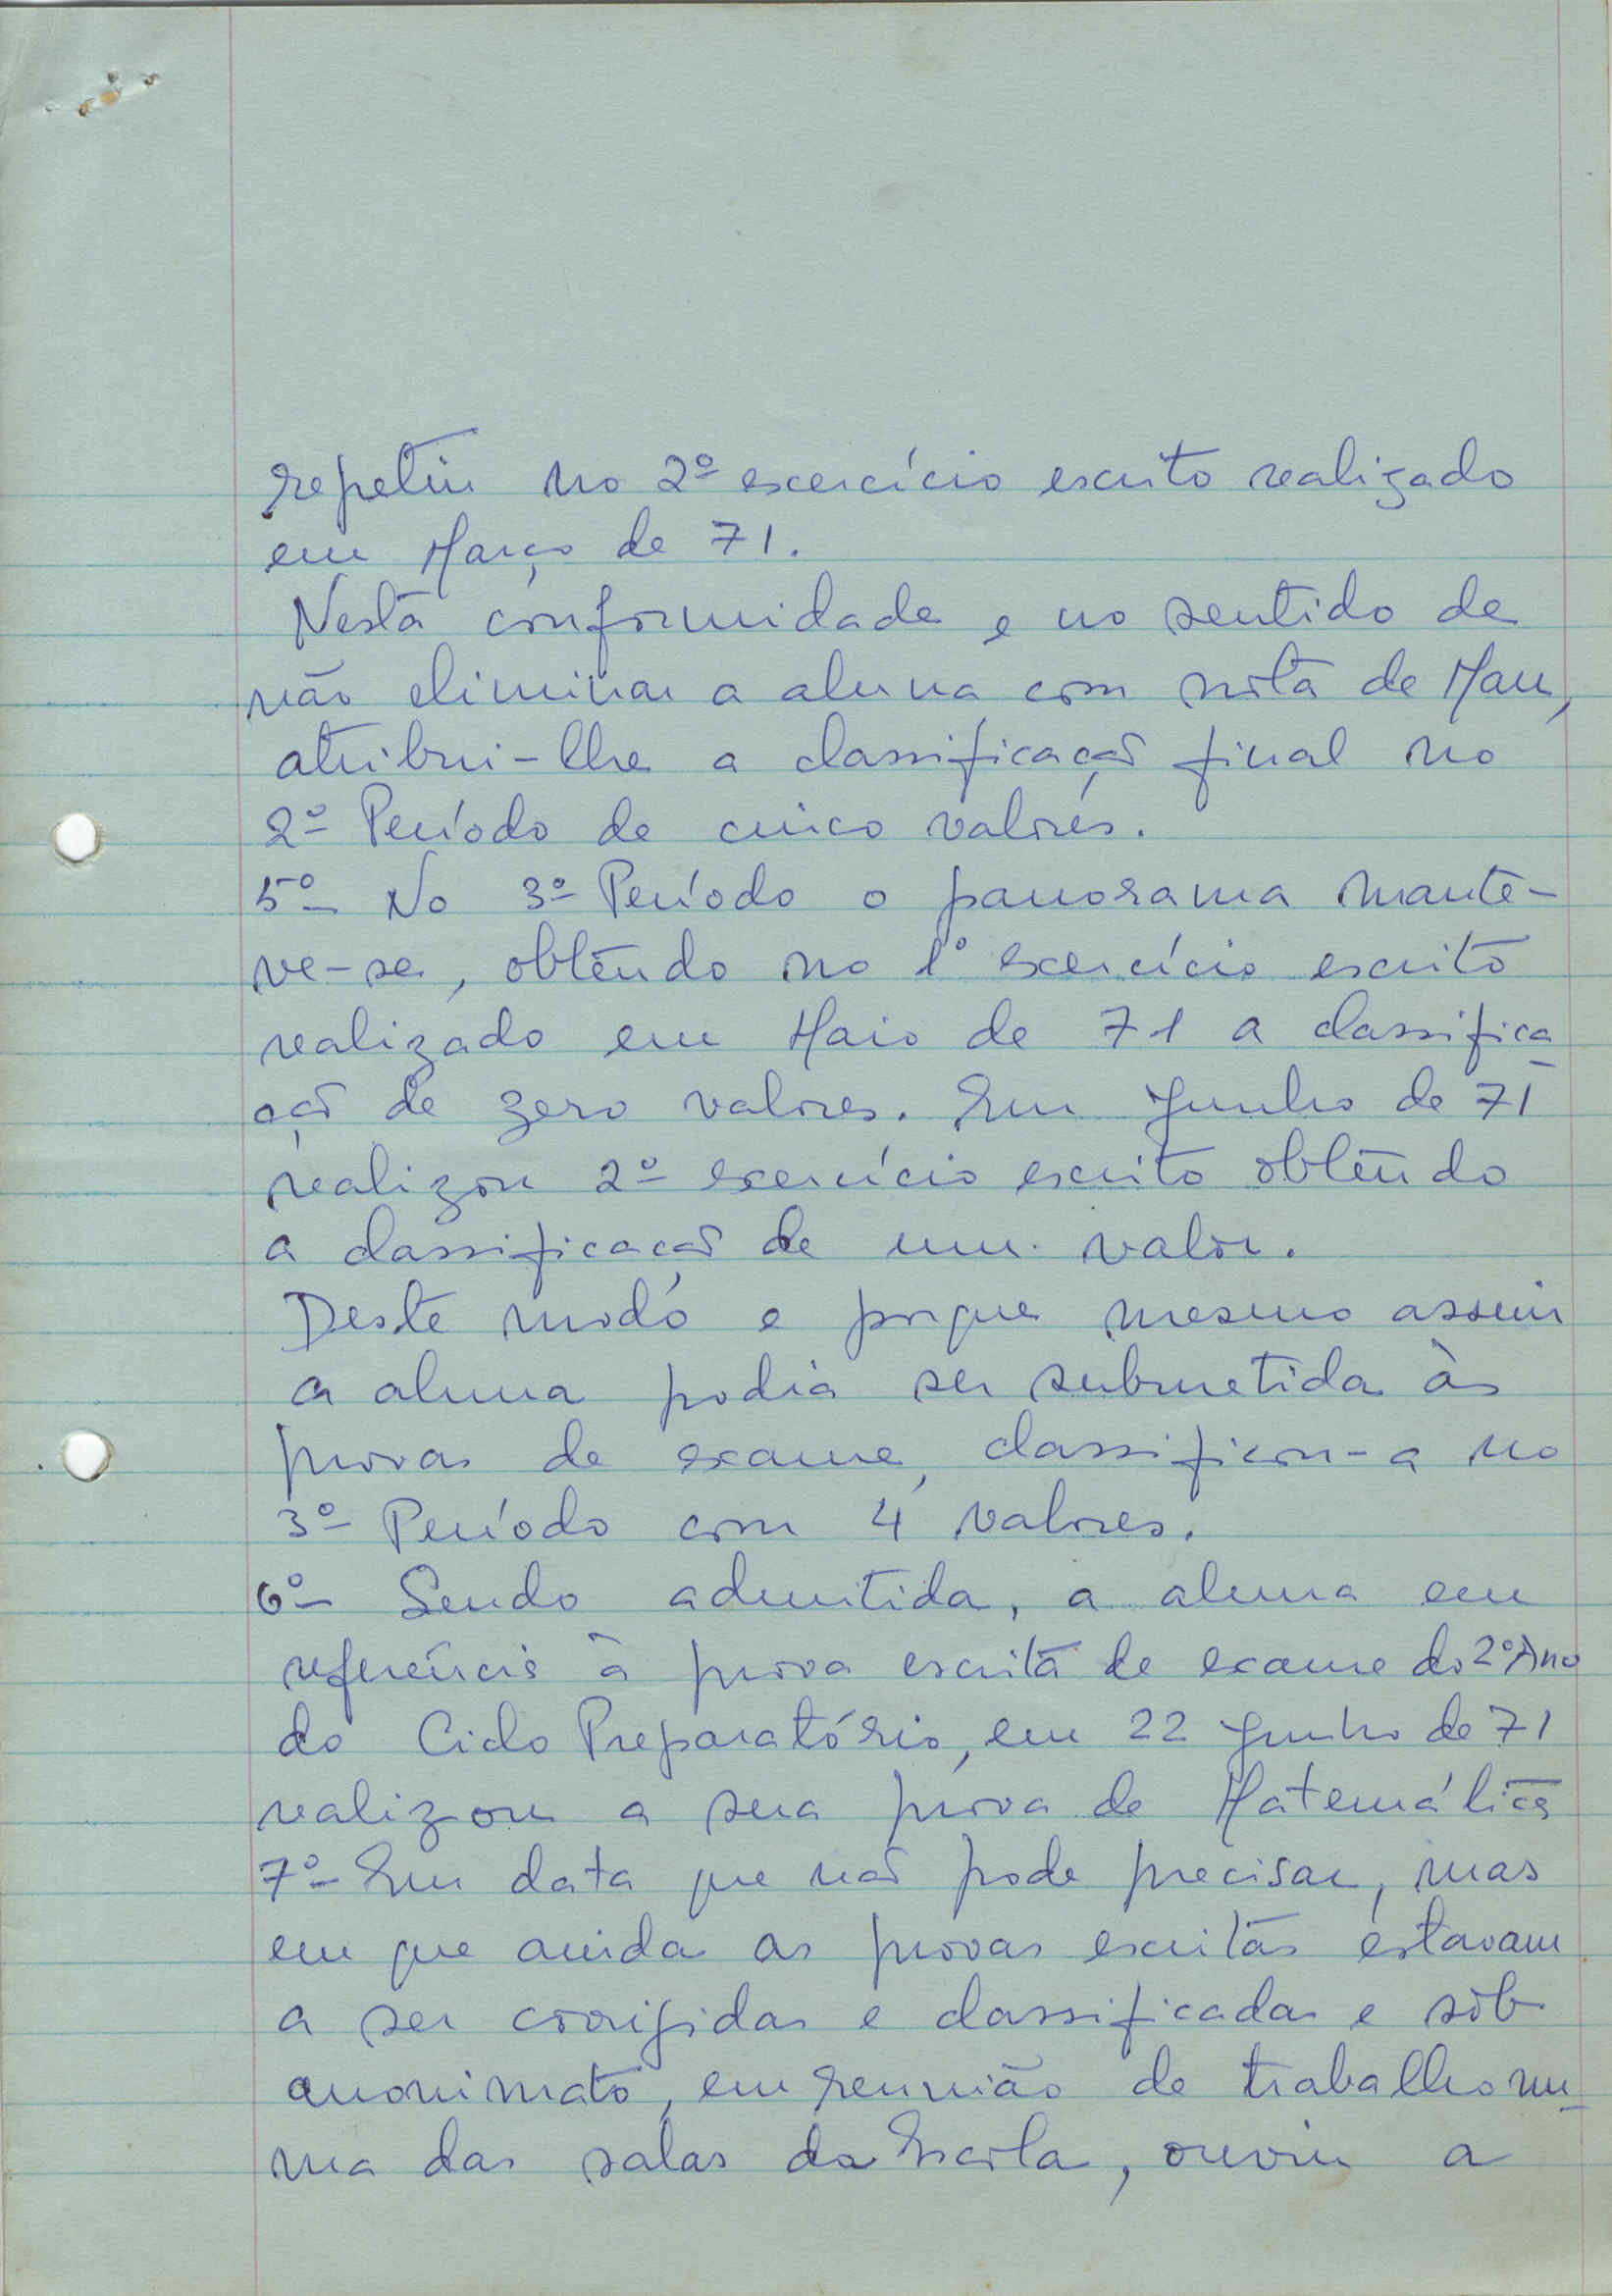 repetiu no 2º exercício escrito realizado
em Março de 71.
Nesta conformidade e no sentido de
não eliminar a aluna com nota de Mau,
atribui-lhe a classificação final no
2º Período de cinco valores.
5º- No 3º Período o panorama mante-
ve-se, obtendo no 1º exercício escrito
realizado em Maio de 71 a classifica
ção de zero valores. Em Junho de 71
realizou 2º exercício escrito obtendo
a classificação de um valor.
Deste modo e porque mesmo assim
a aluna podia ser submetida às
provas de exame, classificou-a no
3º Período com 4 valores.
6º- Sendo admitida, a aluna em
referência à prova escrita de exame do 2º Ano
do Ciclo Preparatório, em 22 Junho de 71
realizou a sua prova de Matemática
7º- Em data que não pode precisar, mas
em que ainda as provas escritas estavam
a ser corrigidas e classificadas e sob
anonimato, em reunião de trabalho nu-
ma das salas da Escola, ouviu a